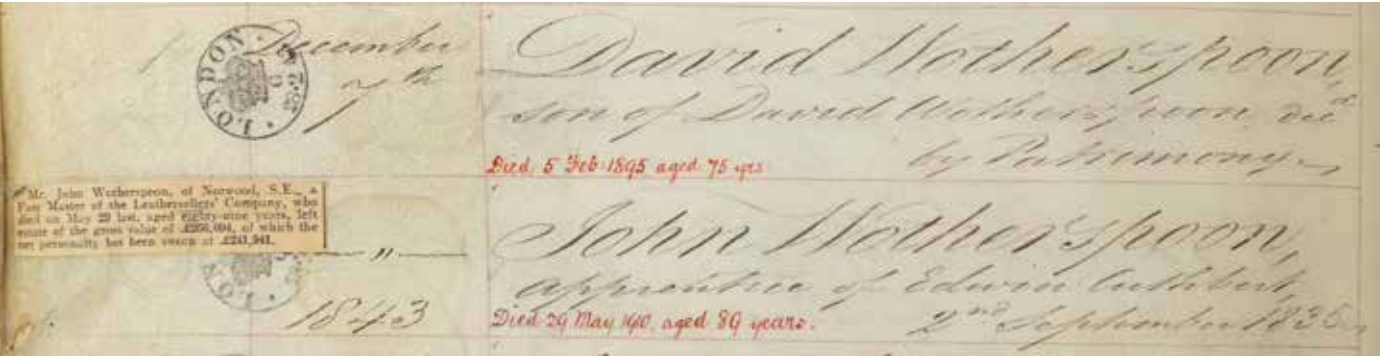 December
7th
LONDON
David Wotherspoon,
son of David Wotherspoon decd
by Patrimony
Died 5 Feb 1895 aged 75 yrs
Mr. John Wotherspoon, of Norwood, S.E., a
Past Master of the Leathersellers' Company, who
died on May 29 last, aged eighty-nine years, left
estate of the gross value of of which the
net personalty has been sworn at £241,941.
"
John Wotherspoon,
apprentice of Edwin Cuthbert,
1843
Died 29 May 1910 aged 89 years.
2nd September 1835